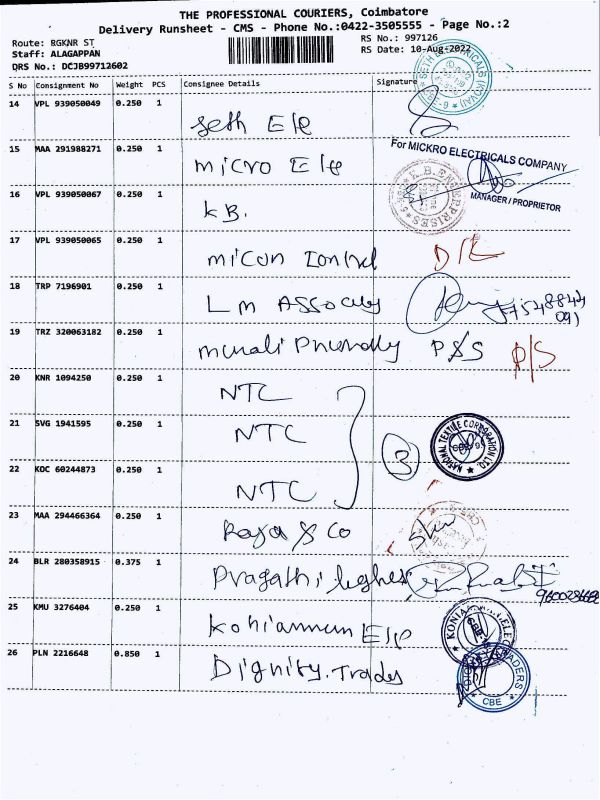 THE PROFESSIONAL COURIERS, Coimbatore
Delivery Runsheet - CMS - Phone No.:0422-3505555 - Page No.:2
Route: RGKNR ST
RS No.: 997126
Staff: ALAGAPPAN
RS Date: 10-Aug-2022
QRS No.: DCJB99712602
S No Consignment No Weight PCS Consignee Details Signature
14 VPL 939050049 0.250 1 Seth Ele
15 MAA 291988271 0.250 1 micro Ele
For MICKRO ELECTRICALS COMPANY
MANAGER / PROPRIETOR
16 VPL 939050067 0.250 1 KB.
17 VPL 939050065 0.250 1 micon Control D/L
18 TRP 7196901 0.250 1 Lm
19 TRZ 320063182 0.250 1 murali P&S P/S
20 KNR 1094250 0.250 1 NTC
21 SVG 1941595 0.250 1 NTC
3
NATIONAL TEXTILE CORPORATION LTD.
22 KOC 60244873 0.250 1 NTC
23 MAA 294466364 0.250 1 Raja & Co
24 BLR 280358915 0.375 1 Pragathi
25 KMU 3276404 0.250 1 Kohiamman Ele
26 PLN 2216648 0.850 1 Dignity. Trades
CBE